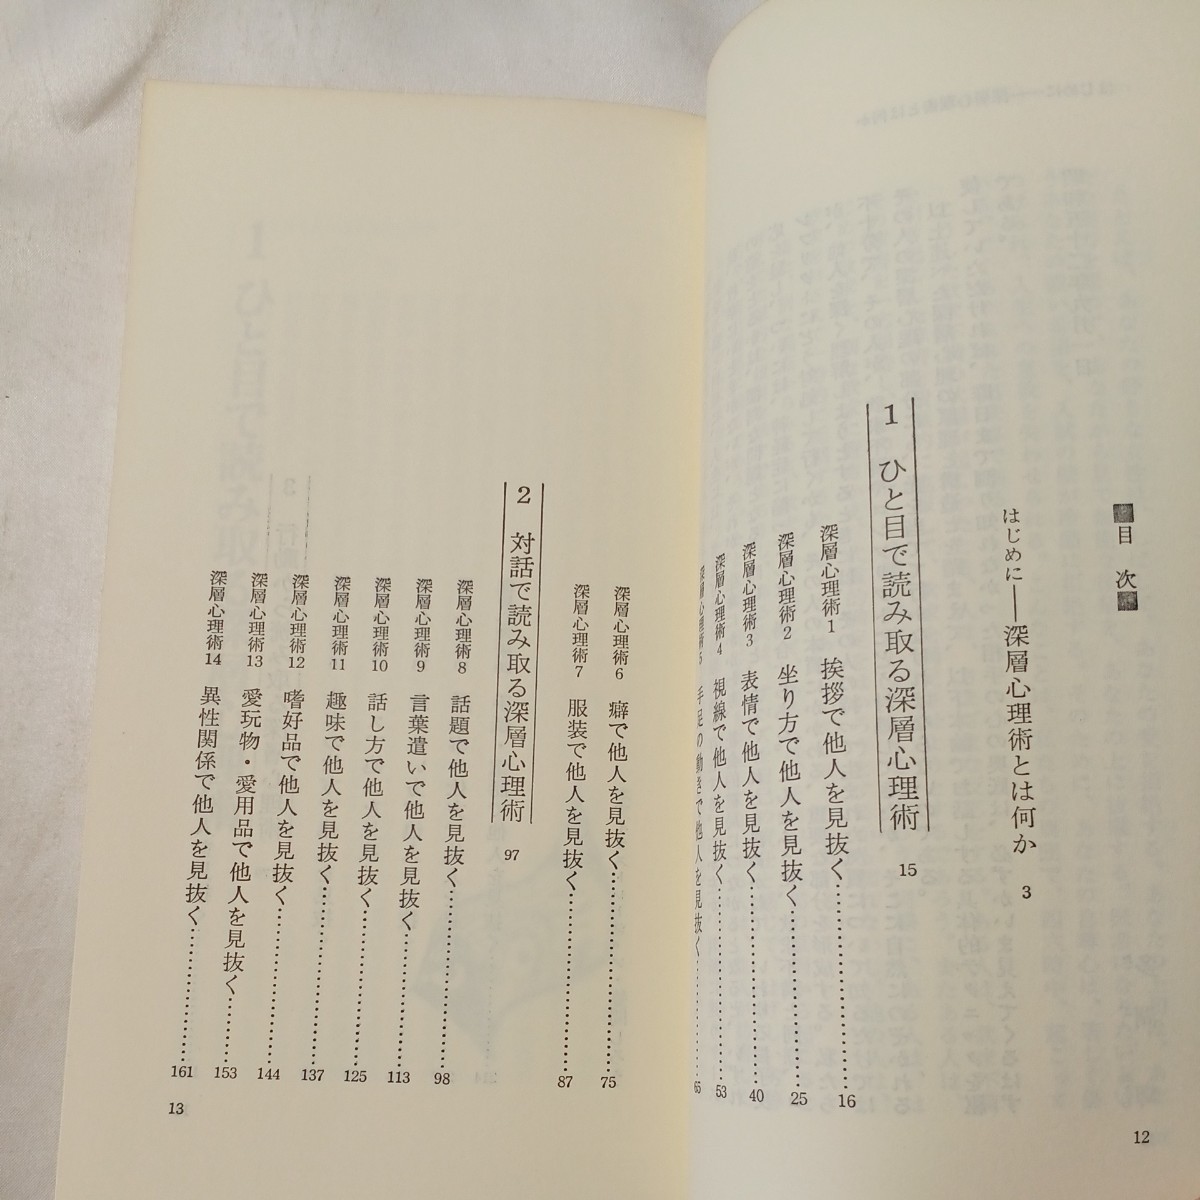 目次
はじめに——深層心理術とは何か 3
1 ひと目で読み取る深層心理術 15
深層心理術1 挨拶で他人を見抜く…………16
深層心理術2 坐り方で他人を見抜く…………25
深層心理術3 表情で他人を見抜く…………40
深層心理術4 視線で他人を見抜く…………53
深層心理術5 手足の動きで他人を見抜く…………65
12
深層心理術6 癖で他人を見抜く…………75
深層心理術7 服装で他人を見抜く…………87
2 対話で読み取る深層心理術 97
深層心理術8 話題で他人を見抜く…………98
深層心理術9 言葉遣いで他人を見抜く…………113
深層心理術10 話し方で他人を見抜く…………125
深層心理術11 趣味で他人を見抜く…………137
深層心理術12 嗜好品で他人を見抜く…………144
深層心理術13 愛玩物・愛用品で他人を見抜く…………153
深層心理術14 異性関係で他人を見抜く…………161
13